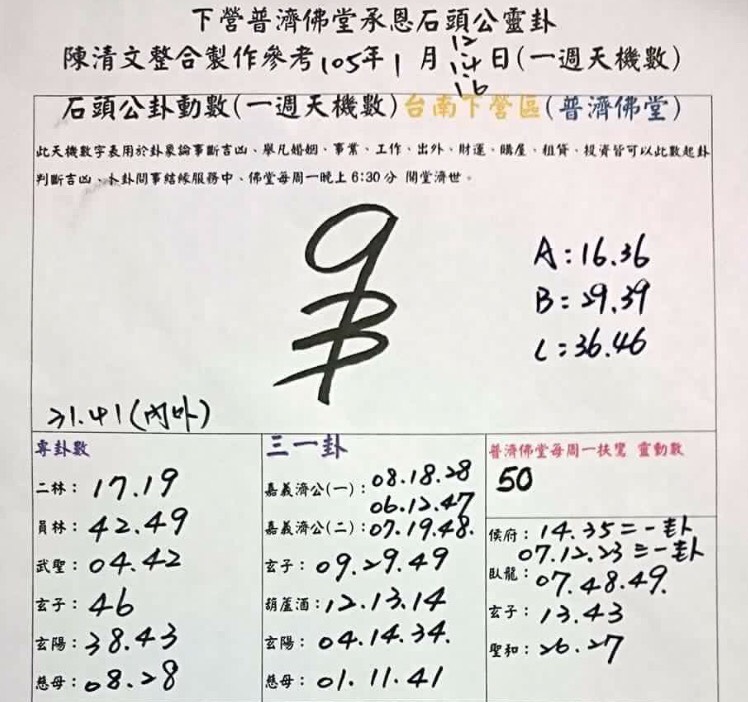 下營普濟佛堂承恩石頭公靈卦
陳清文整合製作參考105年1月12 14 16日(一週天機數)
石頭公卦動數(一週天機數)台南下營區(普濟佛堂)
此天機數字表用於卦象論事斷吉凶、舉凡婚姻、事業、工作、出外、財運、購屋、租賃、投資皆可以此數起卦
判斷吉凶、卜卦問事結緣服務中、佛堂每周一晚上6:30分 開堂濟世。
A:16.36
B:29.39
C:36.46
21.41(內外)
專卦數
二林:17.19
員林:42.49
武聖:04.42
玄子:46
玄陽:38.43
慈母:08.28
三一卦
嘉義濟公(一):08.18.28
06.12.47
嘉義濟公(二):07.19.48.
玄子:09.29.49
葫蘆酒:12.13.14
玄陽:04.14.34.
慈母:01.11.41
普濟佛堂每周一扶鸞 靈動數
50
侯府:14.35二一卦
07.12.23三一卦
臥龍:07.48.49.
玄子:13.43
聖和:26.27